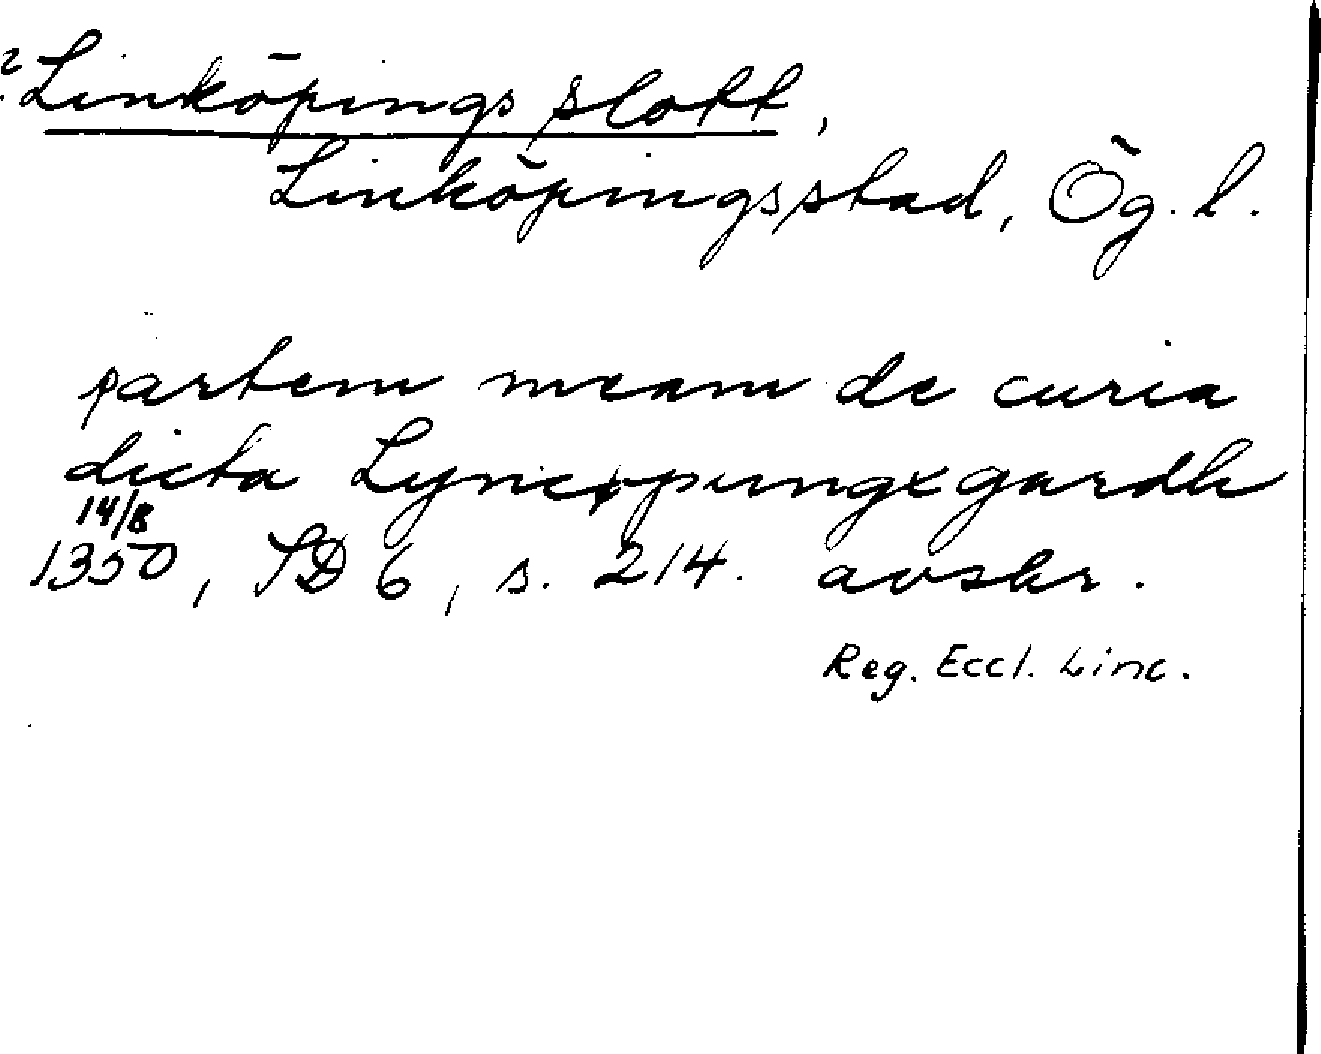 ? Linköpings slott,
Linköpings stad, Ög. l.
partem meam de curia
dicta Lyncøpungxgardh
14/8
1350, SD 6, s. 214. avskr.
Reg. Eccl. Linc.